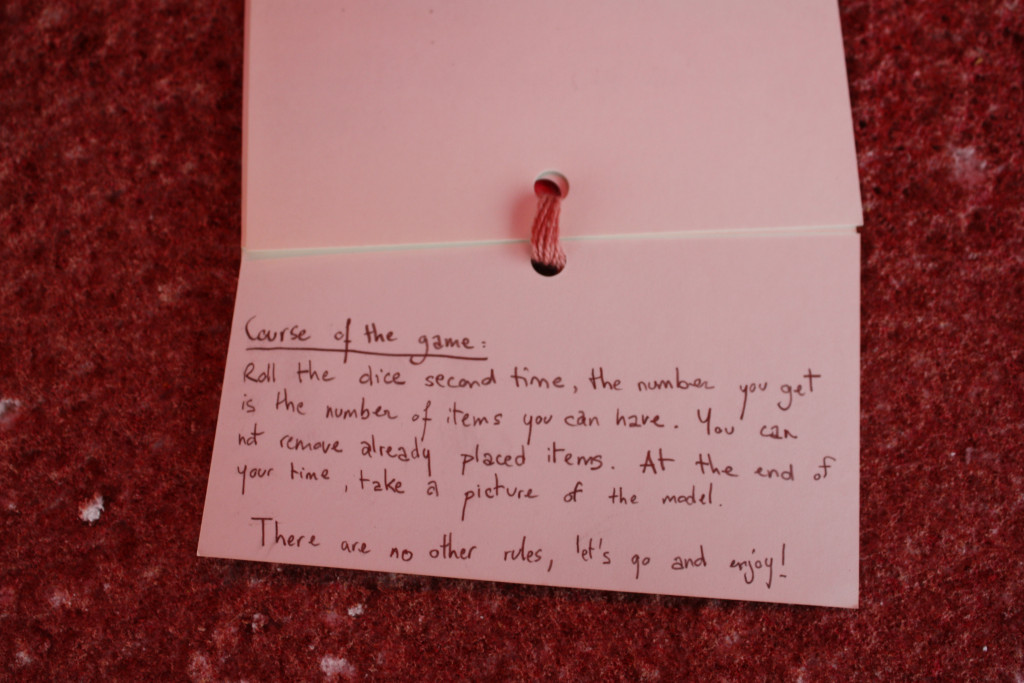 Course of the game:
Roll the dice second time, the number you get
is the number of items you can have. You can
not remove already placed items. At the end of
your time, take a picture of the model.
There are no other rules, let's go and enjoy!